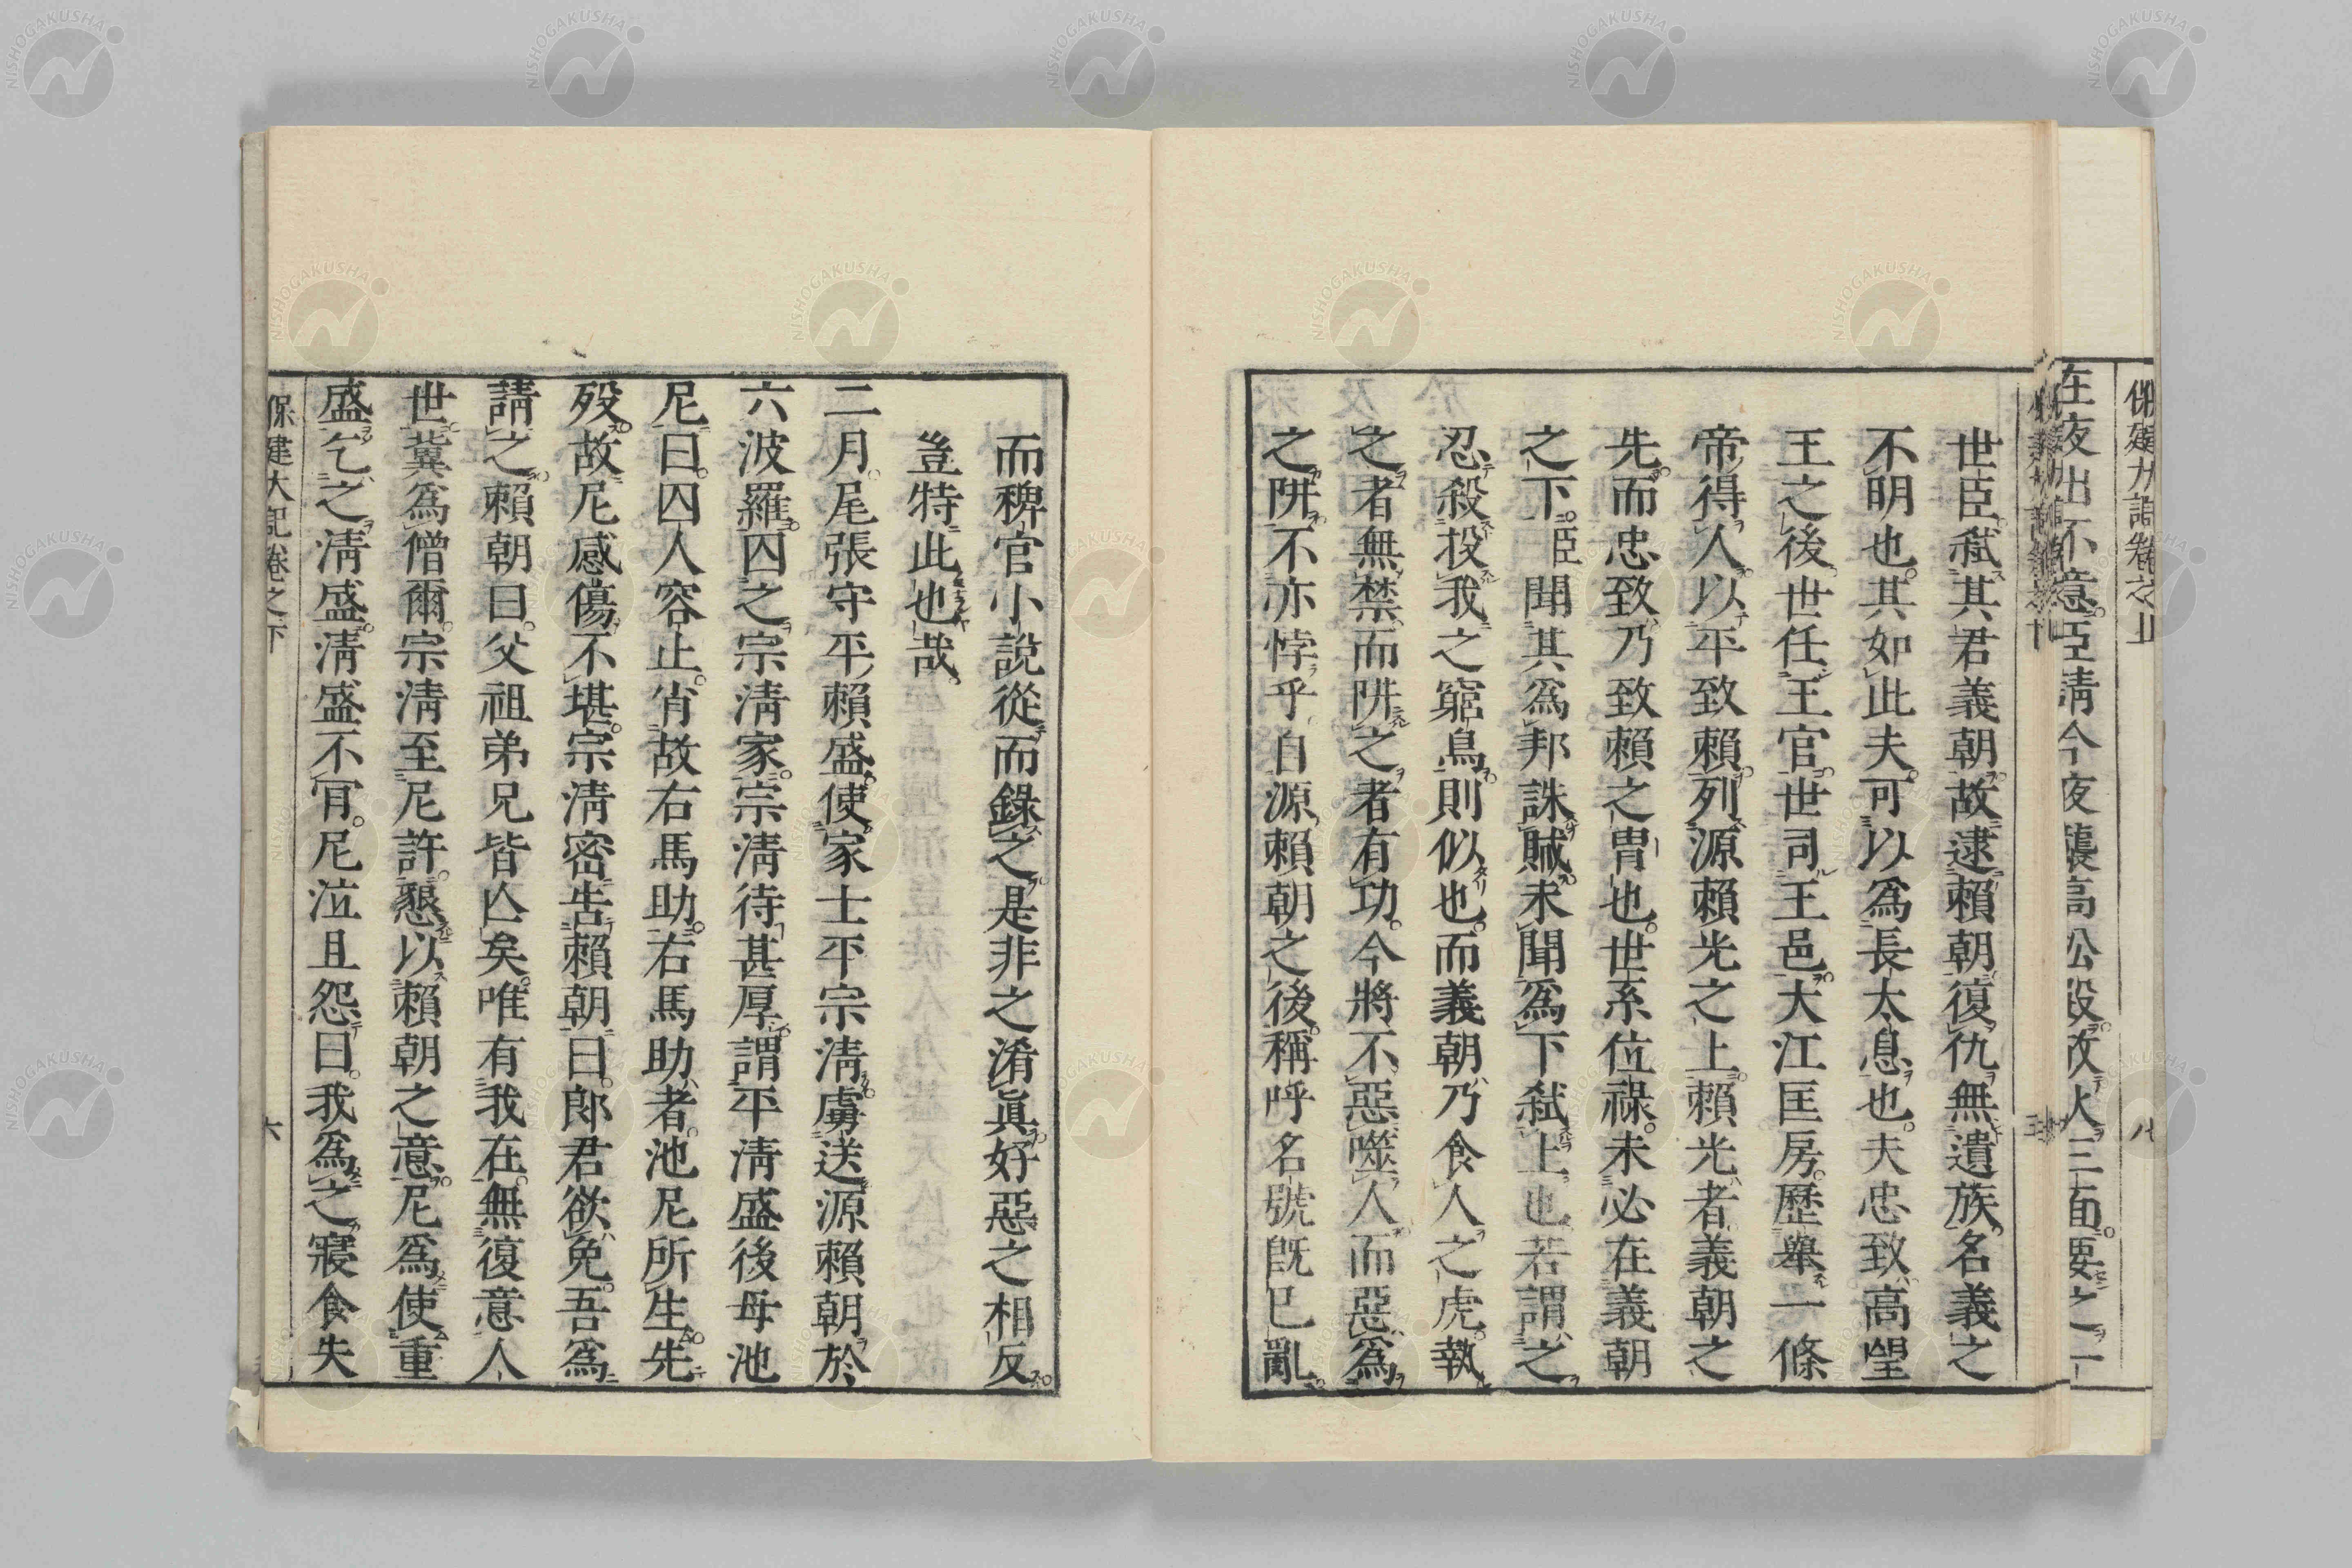 在夜出不意臣請今夜襲高松殿放火三面要之一
世臣弑其君義朝故逮賴朝復仇無遺族名義之
不明也其如此夫可以爲長太息也夫忠致高望
王之後世任王官世司王邑大江匡房歷舉一條
帝得人以平致賴列源賴光之上賴光者義朝之
先而忠致乃致賴之胄也世系位祿未必在義朝
之下臣聞其爲邦誅賊未聞爲下弑上也若謂之
忍殺投我之窮鳥則似也而義朝乃食人之虎執
之者無禁而阱之者有功今將不惡噬人而惡爲
之阱不亦悖乎自源賴朝之後稱呼名號旣已亂
而稗官小說從而錄之是非之淆眞好惡之相反
豈特此也哉
二月尾張守平賴盛使家士平宗淸虜送源賴朝於
六波羅囚之宗淸家宗淸待甚厚謂平淸盛後母池
尼曰囚人容止肖故右馬助右馬助者池尼所生先
歿故尼感傷不堪宗淸密告賴朝曰郎君欲免吾爲
請之賴朝曰父祖弟兄皆亾矣唯有我在無復意人
世冀爲僧爾宗淸至尼許懇以賴朝之意尼爲使重
盛乞之淸盛淸盛不肎尼泣且怨曰我爲之寢食失
保建大記卷之下
六
NISHOGAKUSHA